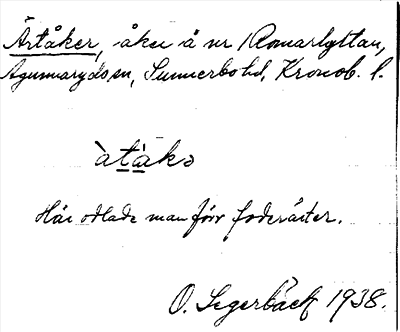 Ärtåker, åker å nr 1 Romarhyttan,
Agunnaryds sn, Sunnerbo hd, Kronob. l.
àtàkə
Här odlade man förr foderärter.
O. Segerbäck 1938.